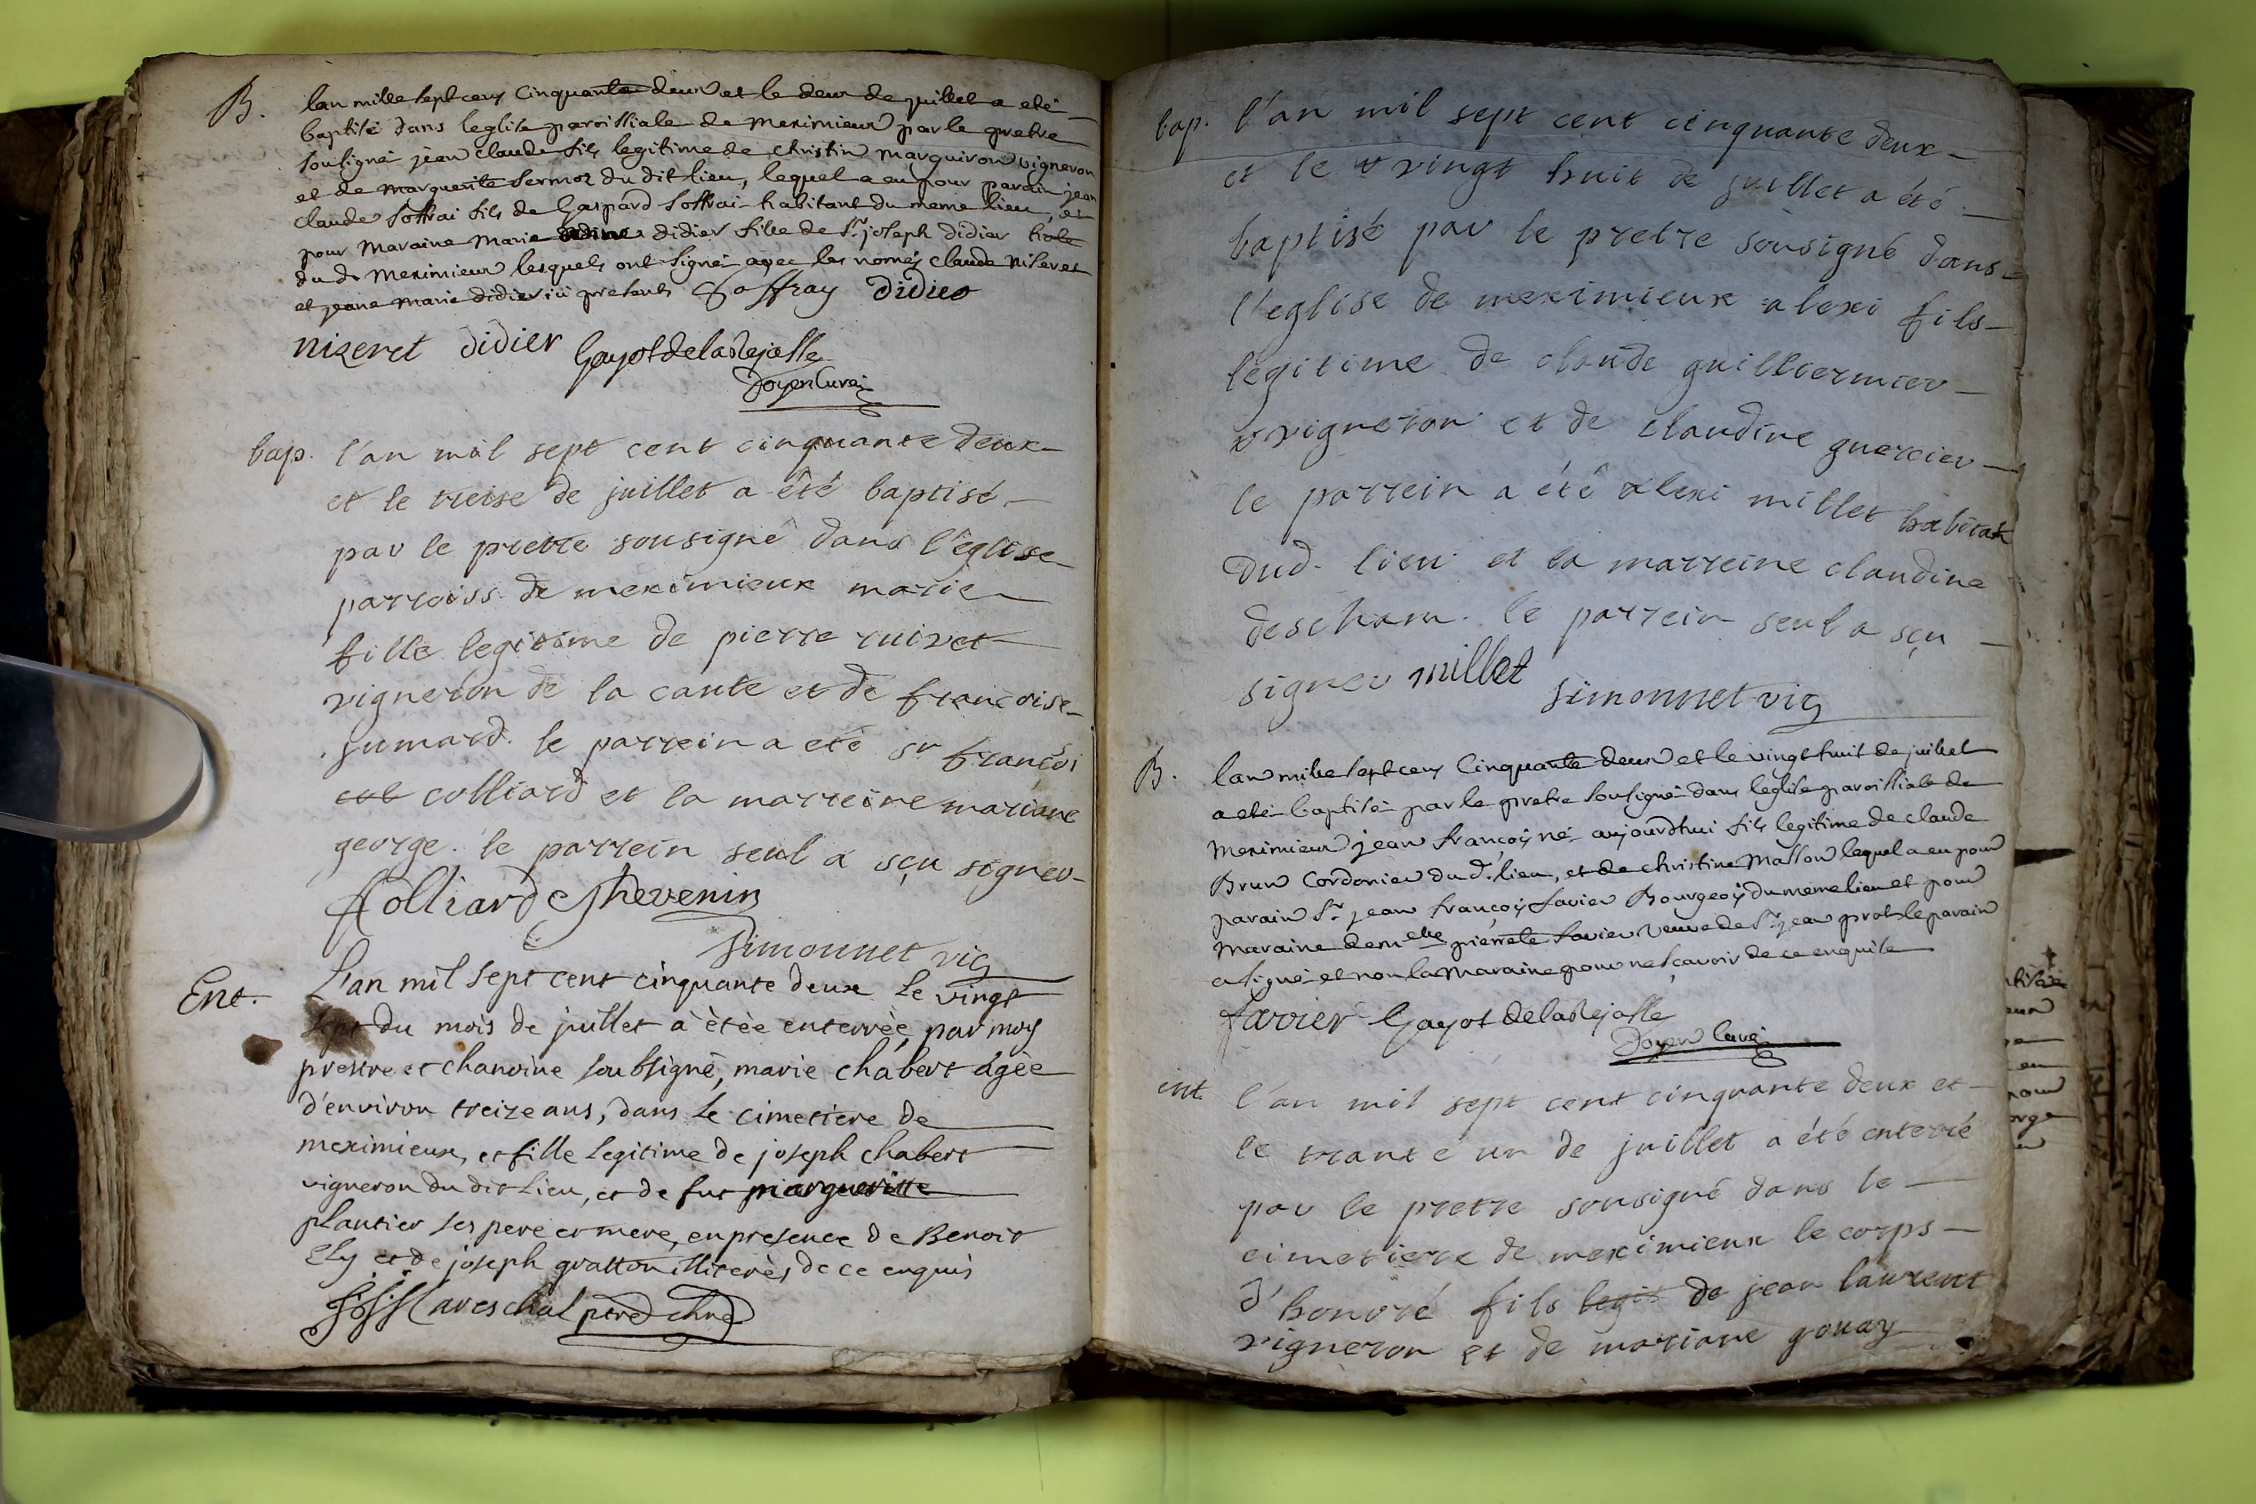 B. lan mille sept cens Cinquante deux et le deux de juillet a eté
baptisé dans leglise paroissiale de meximieux par le pretre
sousigné jean claude fils legitime de christin marguiron vigneron
et de marguerite sermoz du dit lieu, lequel a eu pour parain jean
claude soffrai fils de Gaspard soffrai habitant du meme lieu, et
pour maraine marie didier fille de Sr. joseph didier
du dt meximieux lesquels ont signé avec les només claude niseret
et jeane marie didier ici presents Soffray Didier
nizeret didier Gayot de la Rejasse
Doyen Curé
bap. l'an mil sept cent cinquante deux
et le treise de juillet a été baptisé
par le pretre sousigné dans l'église
parroiss. de meximieux marie
fille legitime de pierre ruivet
vigneron de la cante et de francoise
jumard. le parrein a eté Sr françoi
col colliard et la marreine mariane
george. le parrein seul a sçu signer
Colliard Thevenin
Simonnet vic
Ent. L'an mil sept cent cinquante deux le vingt
sept du mois de juillet à ètèe enterrèe, par moy
prestre et chanoine soubsigné, marie chabert agèe
d'environ treize ans, dans le cimetiere de
meximieux, et fille legitime de joseph chabert
vigneron du dit lieu, et de fut margueritte
plantier ses pere et mere, en presence de Benoit
Ely et de joseph gratton illiterès de ce enquis
Mareschal ptre chne
bap. l'an mil sept cent cinquante deux
et le vingt huit de juillet a été
baptisé par le pretre sousigné dans
l'eglise de meximieux alexi fils
légitime de claude guilliermier
vigneron et de claudine guercier
le parrein a été alexi millet habitat
dud. lieu et la marreine claudine
descham. le parrein seul a sçu
signer millet
Simonnet vic
B. lan mille sept cens Cinquante deux et le vingt huit de juillet
a eté baptisé par le pretre sousigné dans leglise paroissiale de
meximieux jean françois né aujourdhui fils legitime de claude
Brun Cordonier du dt. lieu, et de christine masson lequel a eu pour
parain Sr. jean françois favier Bourgeois du meme lieu et pour
maraine demelle pierrette favier veuve de Sr. jean prost le parain
a signé et non la maraine pour ne sçavoir de ce enquise
favier Gayot de la Rejasse
Doyen Curé
int. l'an mil sept cent cinquante deux et
le trante un de juillet a été enterré
par le pretre sousigné dans le
cimetiere de meximieux le corps
d'honoré fils legit de jean laurent
vigneron et de mariane gouay